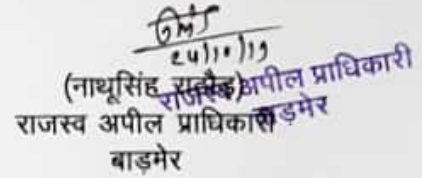 24/10/19
(नाथूसिंह राठौड़)
राजस्व अपील प्राधिकारी
बाड़मेर
राजस्व अपील प्राधिकारी
बाड़मेर